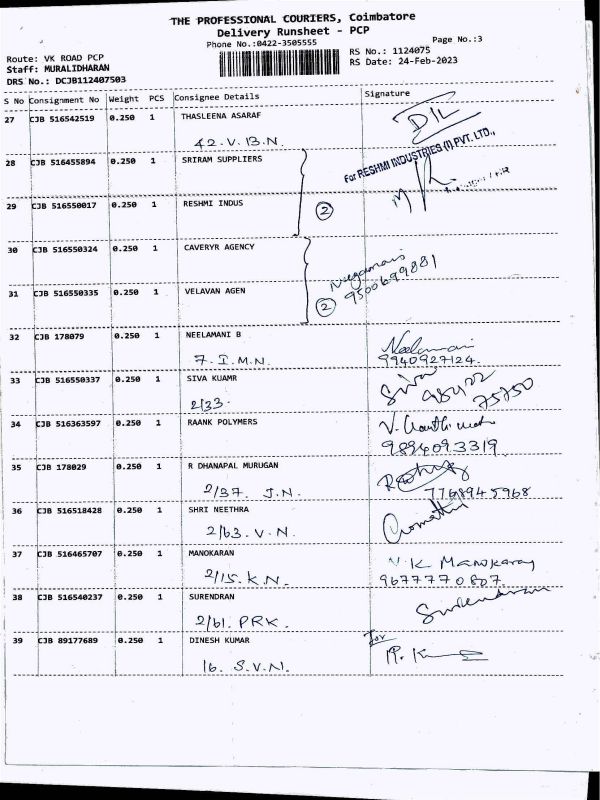 THE PROFESSIONAL COURIERS, Coimbatore
Delivery Runsheet - PCP
Phone No.:0422-3505555
Page No.:3
Route: VK ROAD PCP
Staff: MURALIDHARAN
DRS No.: DCJB112407503
RS No.: 1124075
RS Date: 24-Feb-2023
S No Consignment No Weight PCS Consignee Details Signature
27 CJB 516542519 0.250 1 THASLEENA ASARAF
42. V. B. N. DIL
28 CJB 516455894 0.250 1 SRIRAM SUPPLIERS
For RESHMI INDUSTRIES (I) PVT. LTD.,
29 CJB 516550017 0.250 1 RESHMI INDUS
2
30 CJB 516550324 0.250 1 CAVERYR AGENCY
9500699881
31 CJB 516550335 0.250 1 VELAVAN AGEN
2
32 CJB 178079 0.250 1 NEELAMANI B Neelamani
7. I. M. N. 9940927124.
33 CJB 516550337 0.250 1 SIVA KUAMR Siva
2/33. 98422 75750
34 CJB 516363597 0.250 1 RAANK POLYMERS
9894093319
35 CJB 178029 0.250 1 R DHANAPAL MURUGAN
2/37. J.N. 7768945968
36 CJB 516518428 0.250 1 SHRI NEETHRA
2/63. V. N.
37 CJB 516465707 0.250 1 MANOKARAN V. K Manokaran
2/15. K. N. 9677770807.
38 CJB 516540237 0.250 1 SURENDRAN Surendran
2/61. PRK.
39 CJB 89177689 0.250 1 DINESH KUMAR for
16. S. V. N.